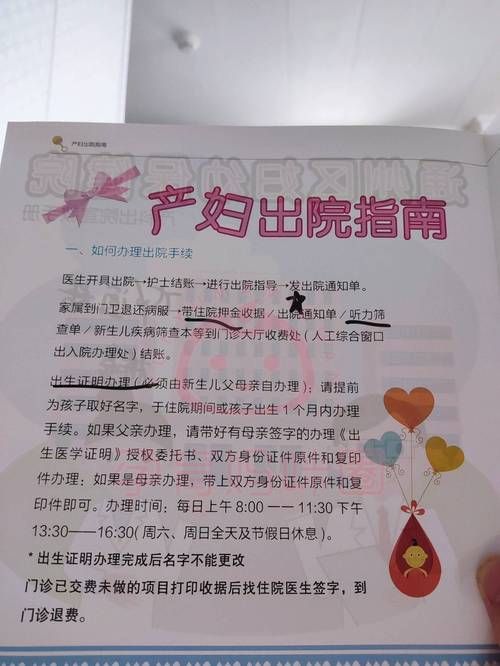 产妇出院指南
产妇出院指南
一、如何办理出院手续
医生开具出院→护士结账→进行出院指导→发出院通知单。
家属到门卫退还病服→带住院押金收据/出院通知单/听力筛
查单/新生儿疾病筛查本等到门诊大厅收费处(人工综合窗口
出入院办理处)结账。
出生证明办理(必须由新生儿父母亲自办理):请提前
为孩子取好名字,于住院期间或孩子出生1个月内办理
手续。如果父亲办理,请带好有母亲签字的办理《出
生医学证明》授权委托书、双方身份证件原件和复印
件办理;如果是母亲办理,带上双方身份证件原件和复
印件即可。办理时间:每日上午8:00一一11:30下午
13:30——16:30(周六、周日全天及节假日休息)。
*出生证明办理完成后名字不能更改
门诊已交费未做的项目打印收据后找住院医生签字,到
门诊退费。